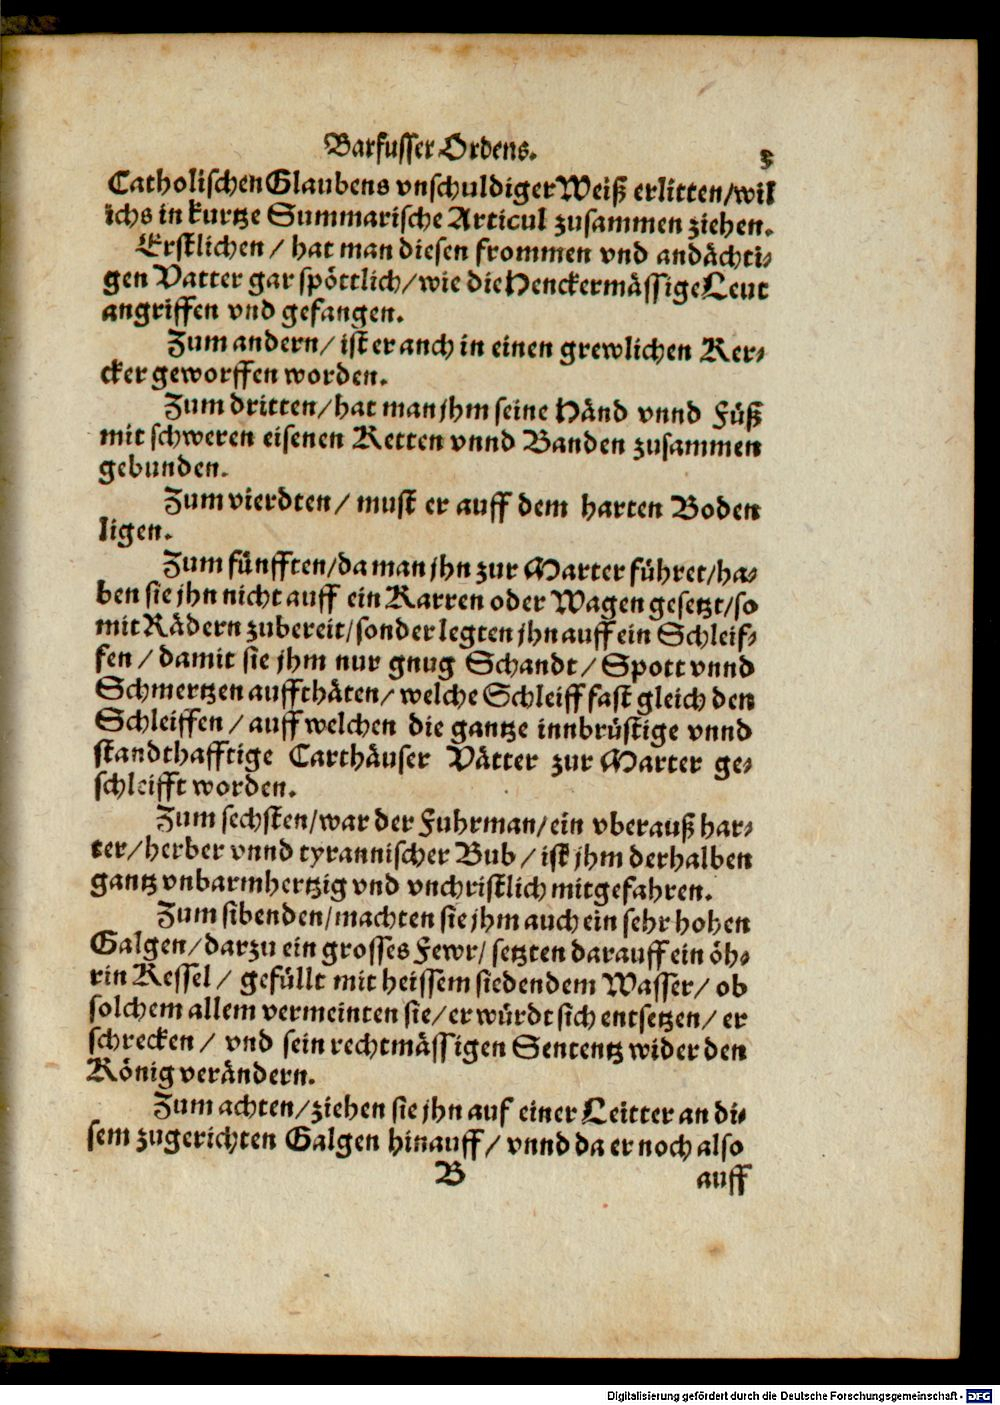 Barfusser Ordens.
5
Catholischen Glaubens vnschuldiger Weiß erlitten/wil
ichs in kurtze Summarische Articul zusammen ziehen.
Erstlichen / hat man diesen frommen vnd andächti-
gen Vatter gar spöttlich/wie die Henckermässige Leut
angriffen vnd gefangen.
Zum andern/ ist er anch in einen grewlichen Ker-
cker geworffen worden.
Zum dritten/hat man jhm seine Händ vnnd Füß
mit schweren eisenen Ketten vnnd Banden zusammen
gebunden.
Zum vierdten/ must er auff dem harten Boden
ligen.
Zum fünfften/da man jhn zur Marter führet/ha-
ben sie jhn nicht auff ein Karren oder Wagen gesetzt/so
mit Rädern zubereit/sonder legten jhn auff ein Schleif-
fen / damit sie jhm nur gnug Schandt/ Spott vnnd
Schmertzen auffthäten/ welche Schleiff fast gleich den
Schleiffen / auff welchen die gantze innbrüstige vnnd
standthafftige Carthäuser Vätter zur Marter ge-
schleifft worden.
Zum sechsten/war der Fuhrman/ein vberauß har-
ter/herber vnnd tyrannischer Bub / ist jhm derhalben
gantz vnbarmhertzig vnd vnchristlich mitgefahren.
Zum sibenden/machten sie jhm auch ein sehr hohen
Galgen/darzu ein grosses Fewr/ setzten darauff ein öh-
rin Kessel / gefüllt mit heissem siedendem Wasser/ ob
solchem allem vermeinten sie/ er würdt sich entsetzen/ er
schrecken / vnd sein rechtmässigen Sententz wider den
König verändern.
Zum achten/ziehen sie jhn auf einer Leitter an di-
sem zugerichten Galgen hinauff/ vnnd da er noch also
B
auff
Digitalisierung gefördert durch die Deutsche Forschungsgemeinschaft - DFG